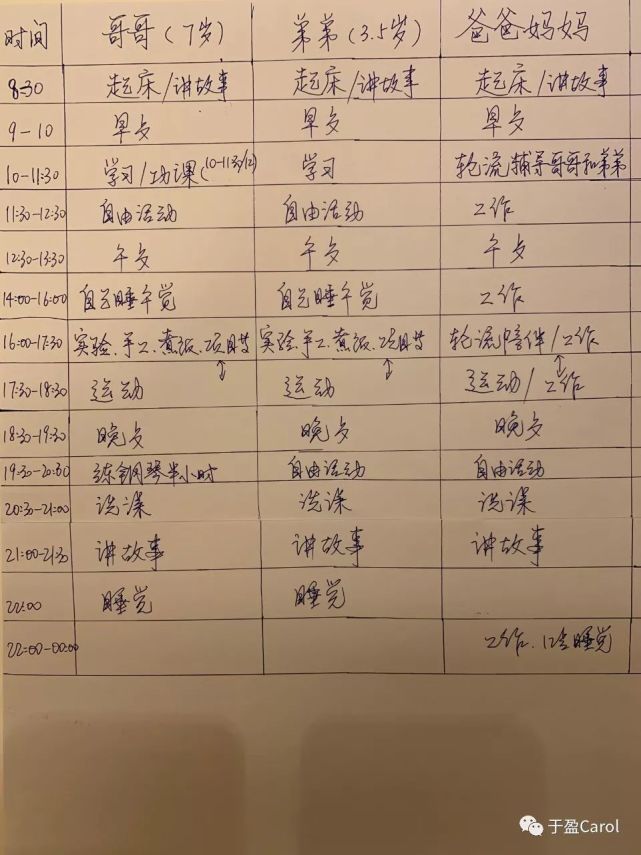 时间 哥哥(7岁) 弟弟(3.5岁) 爸爸妈妈
8:30 起床/讲故事 起床/讲故事 起床/讲故事
9-10 早夕 早夕 早夕
10-11:30 学习/功课(10-11:30/12) 学习 轮流辅导哥哥和弟弟
11:30-12:30 自由活动 自由活动 工作
12:30-13:30 午夕 午夕 午夕
14:00-16:00 自己睡午觉 自己睡午觉 工作
16:00-17:30 实验、手工、煮饭、项目等 实验、手工、煮饭、项目等 轮流陪伴/工作
↕ ↕ ↕
17:30-18:30 运动 运动 运动/工作
18:30-19:30 晚夕 晚夕 晚夕
19:30-20:30 练钢琴半小时 自由活动 自由活动
20:30-21:00 洗澡 洗澡 洗澡
21:00-21:30 讲故事 讲故事 讲故事
22:00 睡觉 睡觉
22:00-00:00 工作、12点睡觉
于盈Carol